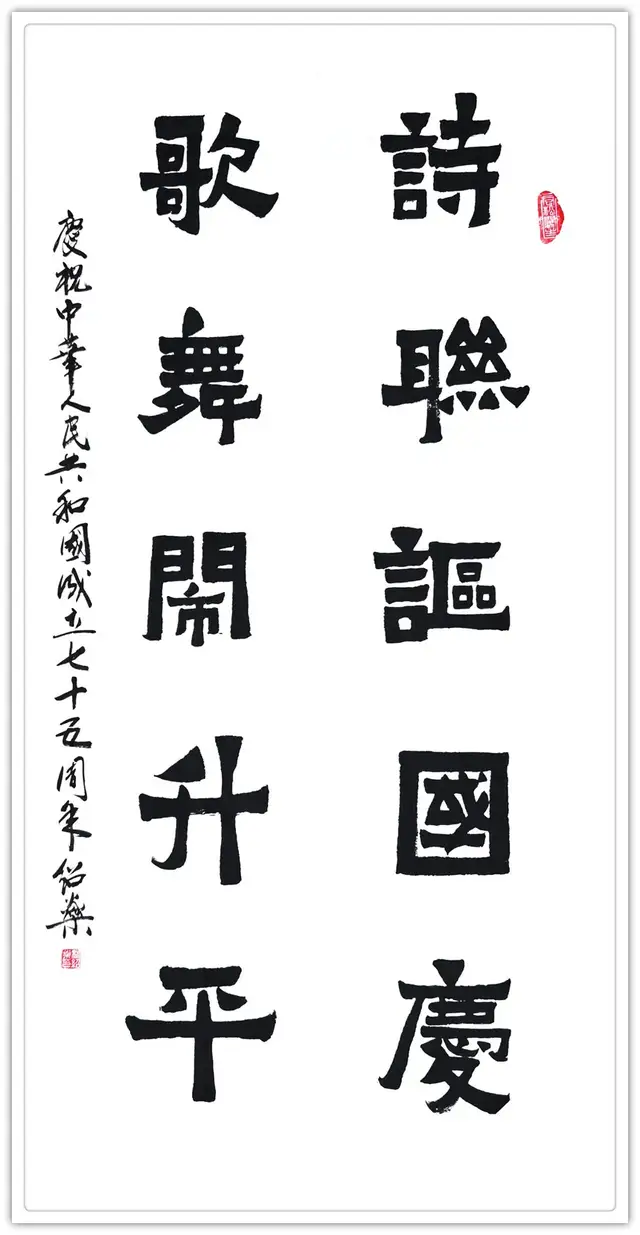 詩聯謳國慶
歌舞鬧升平
慶祝中華人民共和國成立七十五周年紹燊